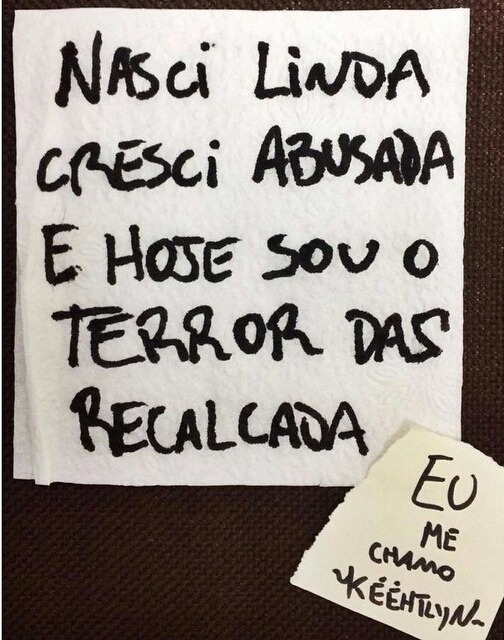 NASCi LiNDA
CRESCi ABUSADA
E HOJE SOU O
TERROR DAS
RECALCADA
EU
ME
CHAMO
~KÉÉHTLYN~